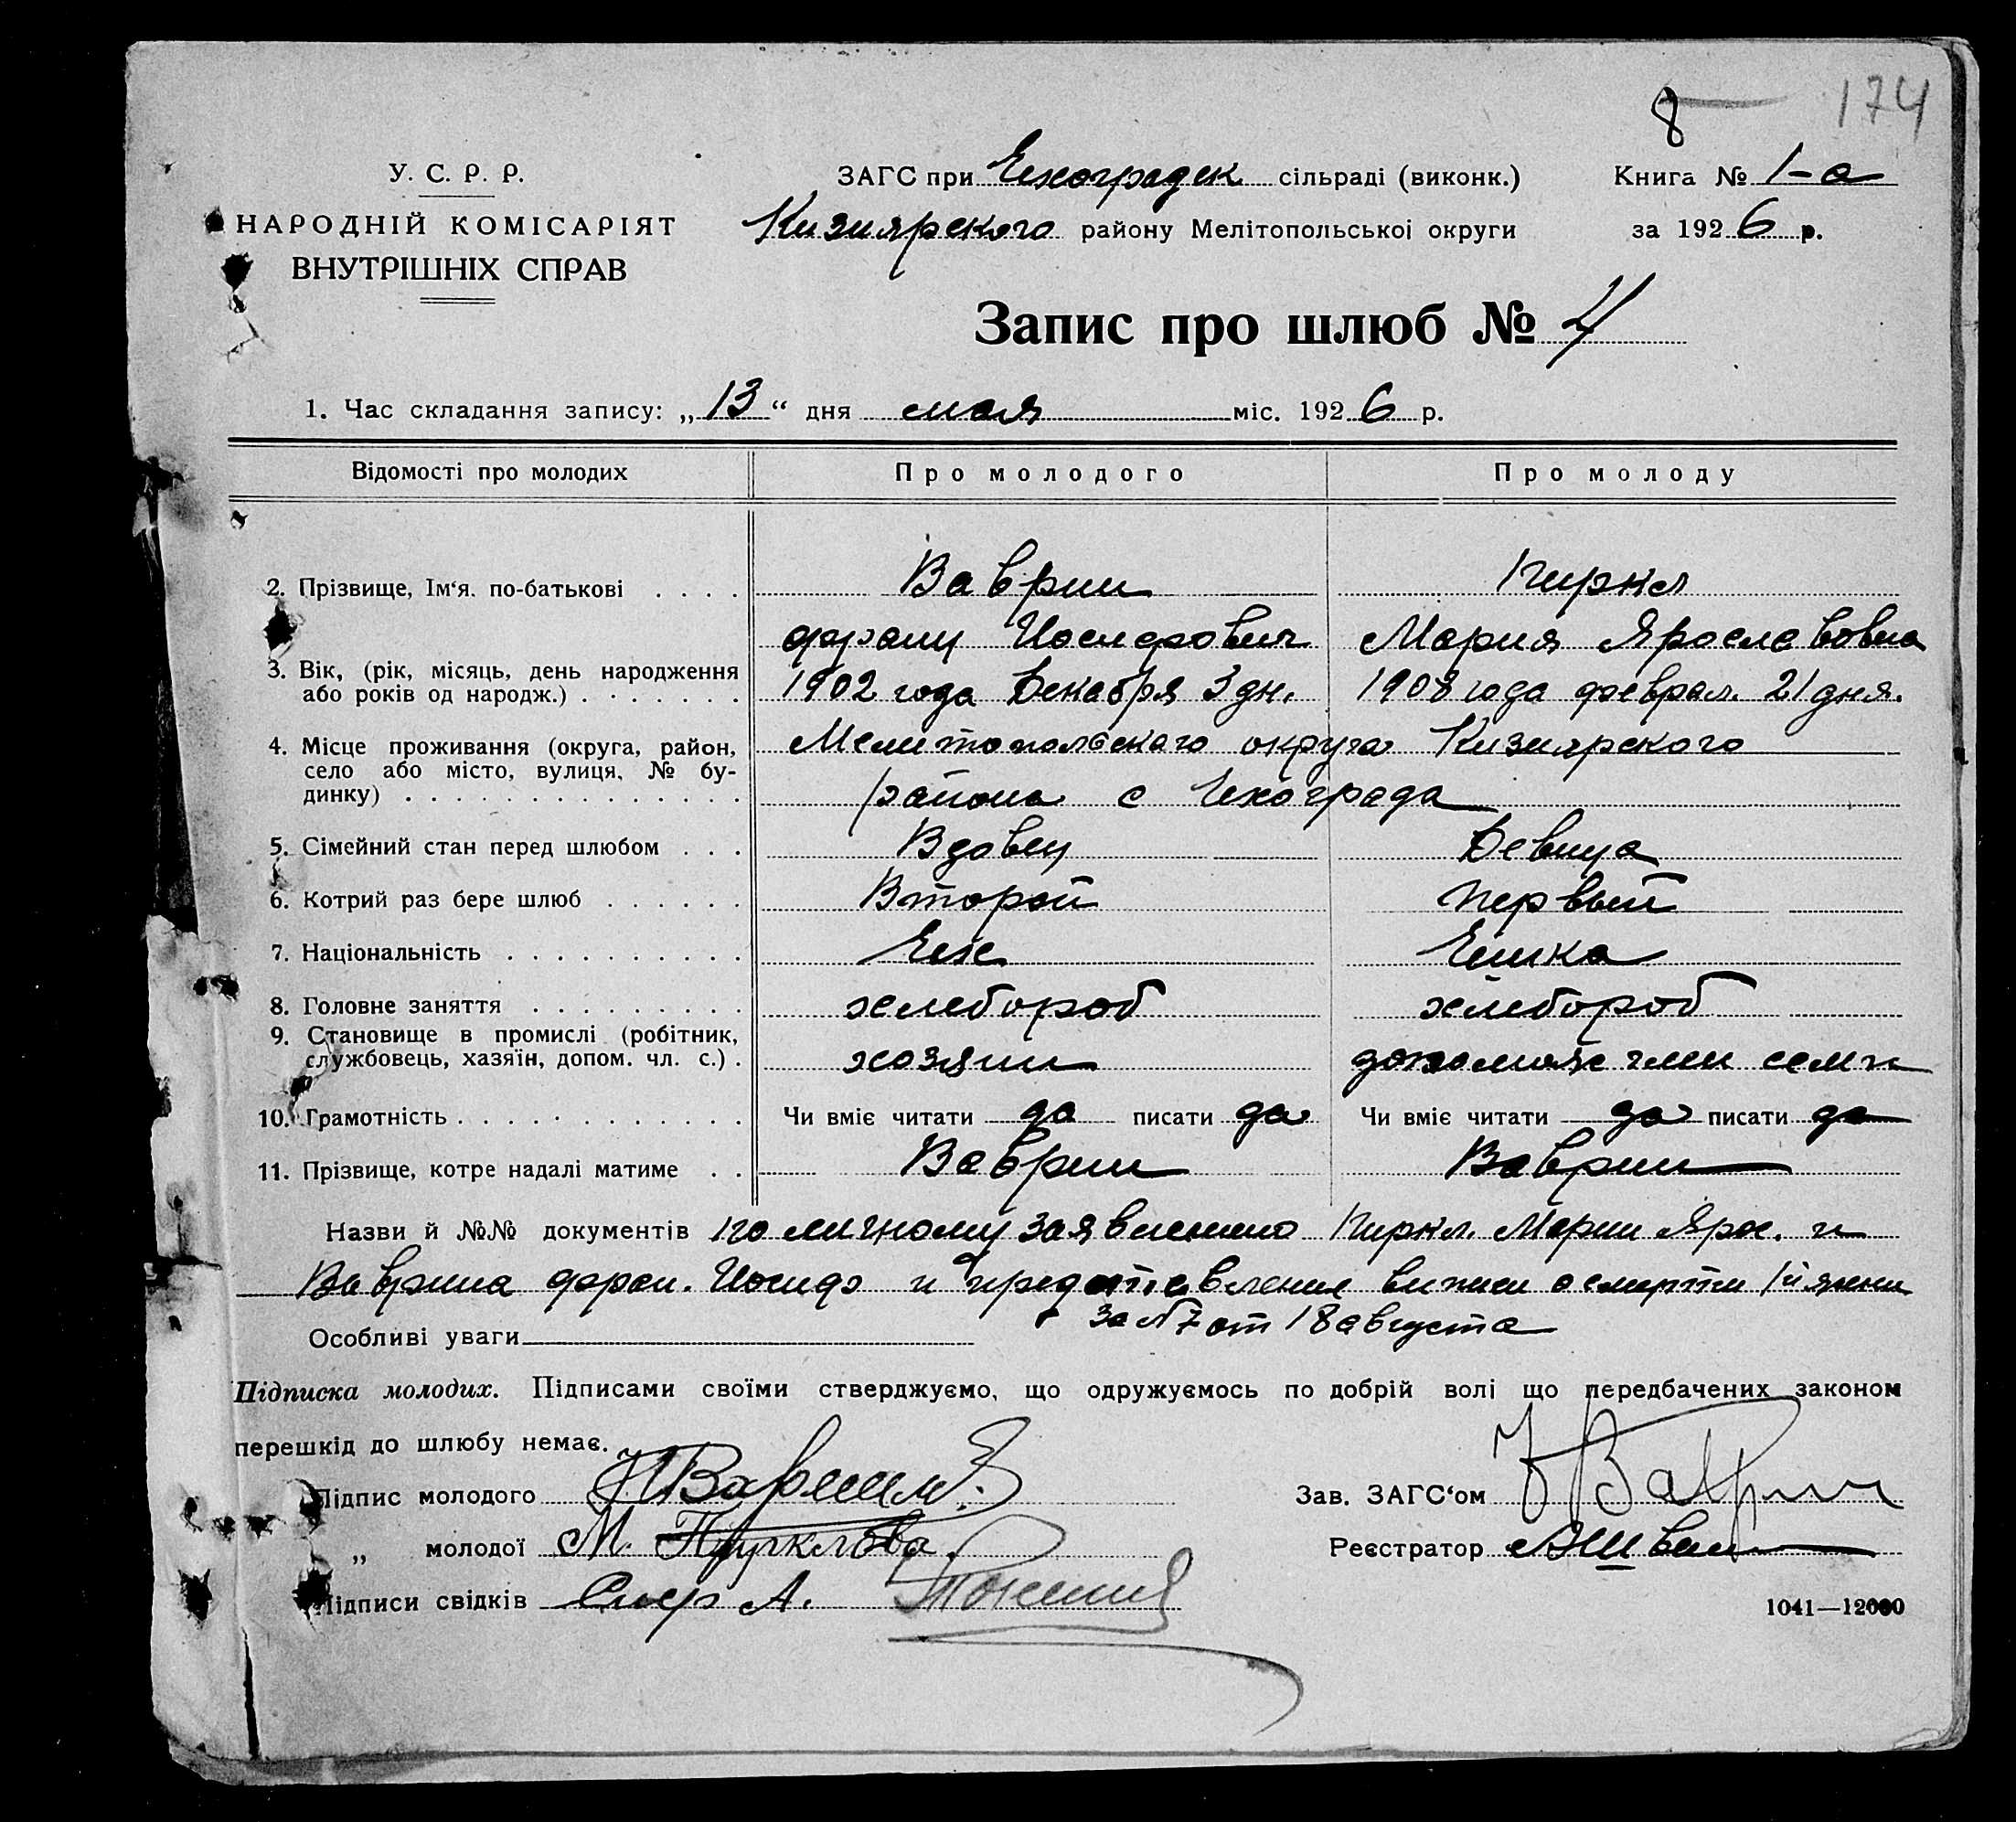 174
8
У. С. Р. Р.
НАРОДНІЙ КОМІСАРІЯТ
ВНУТРІШНІХ СПРАВ
ЗАГС при Чехоградск сільраді (виконк.)
Кизиярского району Мелітопольської округи
Книга № 1-а
за 1926 р.
Запис про шлюб № 4
1. Час складання запису: „13“ дня мая міс. 1926 р.
Відомості про молодих Про молодого Про молоду
2. Прізвище, Ім‘я. по-батькові . . . . Ваврин Пиркл
Франц Иосифович Мария Ярославовна
3. Вік, (рік, місяць, день народження
або років од народж.) . . . . . . . 1902 года Декабря 3 дн. 1908 года феврал. 21 дня.
4. Місце проживання (округа, район,
село або місто, вулиця, № бу-
динку) . . . . . . . . . . . . . .
Мелитопольского округа Кизиярского
района с Чехограда
5. Сімейний стан перед шлюбом . . . Вдовец Девица
6. Котрий раз бере шлюб . . . . . . Второй первый
7. Національність . . . . . . . . . . Чех Чешка
8. Головне заняття . . . . . . . . . хлебороб хлебороб
9. Становище в промислі (робітник,
службовець, хазяїн, допом. чл. с.) . хозяин член семи
10. Грамотність . . . . . . . . . . . . Чи вміє читати да писати да Чи вміє читати да писати да
11. Прізвище, котре надалі матиме . . Ваврин Ваврин
Назви й №№ документів по личному заявлению Пиркл. Марии Яро. и
Ваврина фран. Иосиф и представления виписи о смерти 1й
за №7 от 18 августа
Особливі уваги
Підписка молодих. Підписами своїми стверджуємо, що одружуємось по добрій волі що передбачених законом
перешкід до шлюбу немає.
Підпис молодого
Зав. ЗАГС‘ом Ваврин
„ молодої М. Пирклова
Реєстратор
Підписи свідків А.
1041—12000